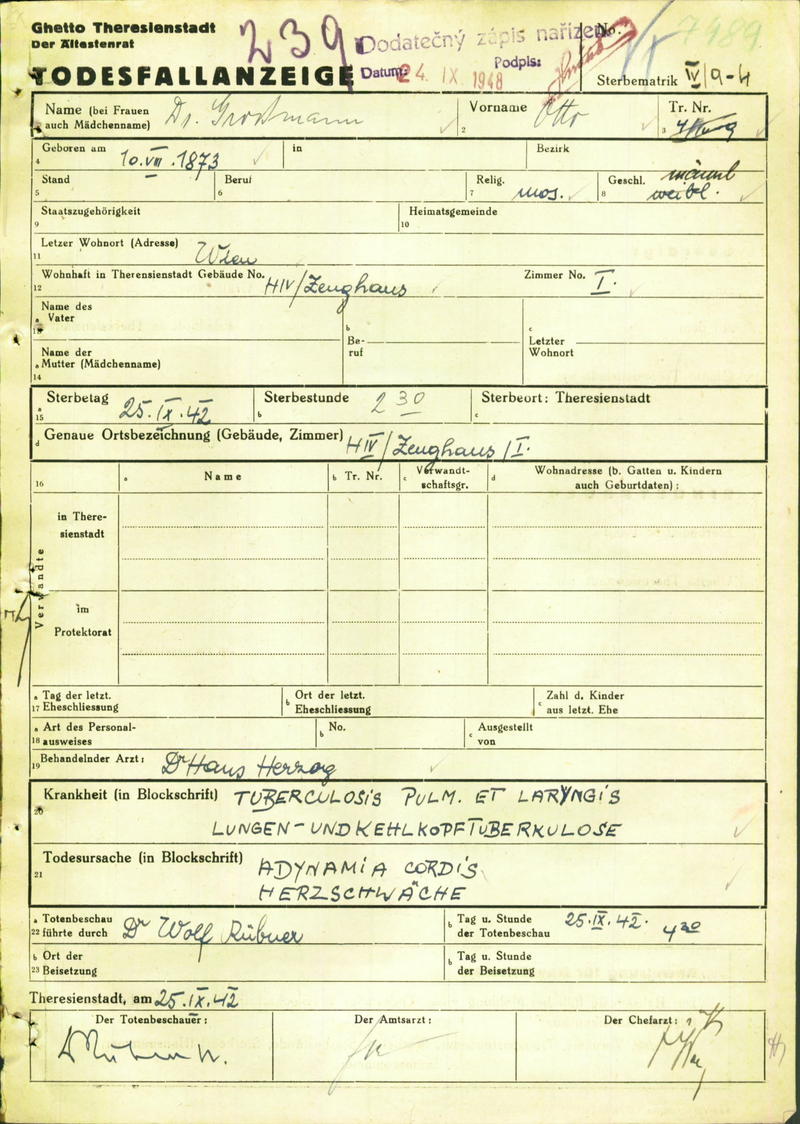 Ghetto Theresienstadt
Der Ältestenrat
239
Dodatečný zápis nařízen
No.
7989
TODESFALLANZEIGE
Datum: 24. IX. 1948
Podpis:
Sterbematrik IV/9-4
Name (bei Frauen auch Mädchenname) Dr. Grossmann
Vorname Otto
2
Tr. Nr.
3
4 Geboren am 10.VII.1873
in
Bezirk
5 Stand
6 Beruf
7 Relig. mos.
8 Geschl. männl weibl.
9 Staatszugehörigkeit
10 Heimatsgemeinde
11 Letzer Wohnort (Adresse) Wien
12 Wohnhaft in Therensienstadt Gebäude No. HIV/Zeughaus
Zimmer No. I.
a Name des Vater
b Beruf
c Letzter Wohnort
a Name der Mutter (Mädchenname)
14
a 15 Sterbetag 25.IX.42
b Sterbestunde 2 30
c Sterbeort: Theresienstadt
d Genaue Ortsbezeichnung (Gebäude, Zimmer) HIV/Zeughaus/I.
16
a Name
b Tr. Nr.
c Verwandtschaftsgr.
d Wohnadresse (b. Gatten u. Kindern auch Geburtdaten):
Verwandte
in Theresienstadt
im Protektorat
a 17 Tag der letzt. Eheschliessung
b Ort der letzt. Eheschliessung
c Zahl d. Kinder aus letzt. Ehe
a 18 Art des Personalausweises
b No.
c Ausgestellt von
19 Behandelnder Arzt: Dr Hans Herzog
20 Krankheit (in Blockschrift) TUBERCULOSIS PULM. ET LARYNGIS
LUNGEN-UND KEHLKOPFTUBERKULOSE
21 Todesursache (in Blockschrift) ADYNAMIA CORDIS
HERZSCHWÄCHE
a 22 Totenbeschau führte durch Dr Wolf Rübner
b Tag u. Stunde der Totenbeschau 25.IX.42. 4 30
b 23 Ort der Beisetzung
b Tag u. Stunde der Beisetzung
Theresienstadt, am 25.IX.42
Der Totenbeschauer:
Der Amtsarzt:
Der Chefarzt: